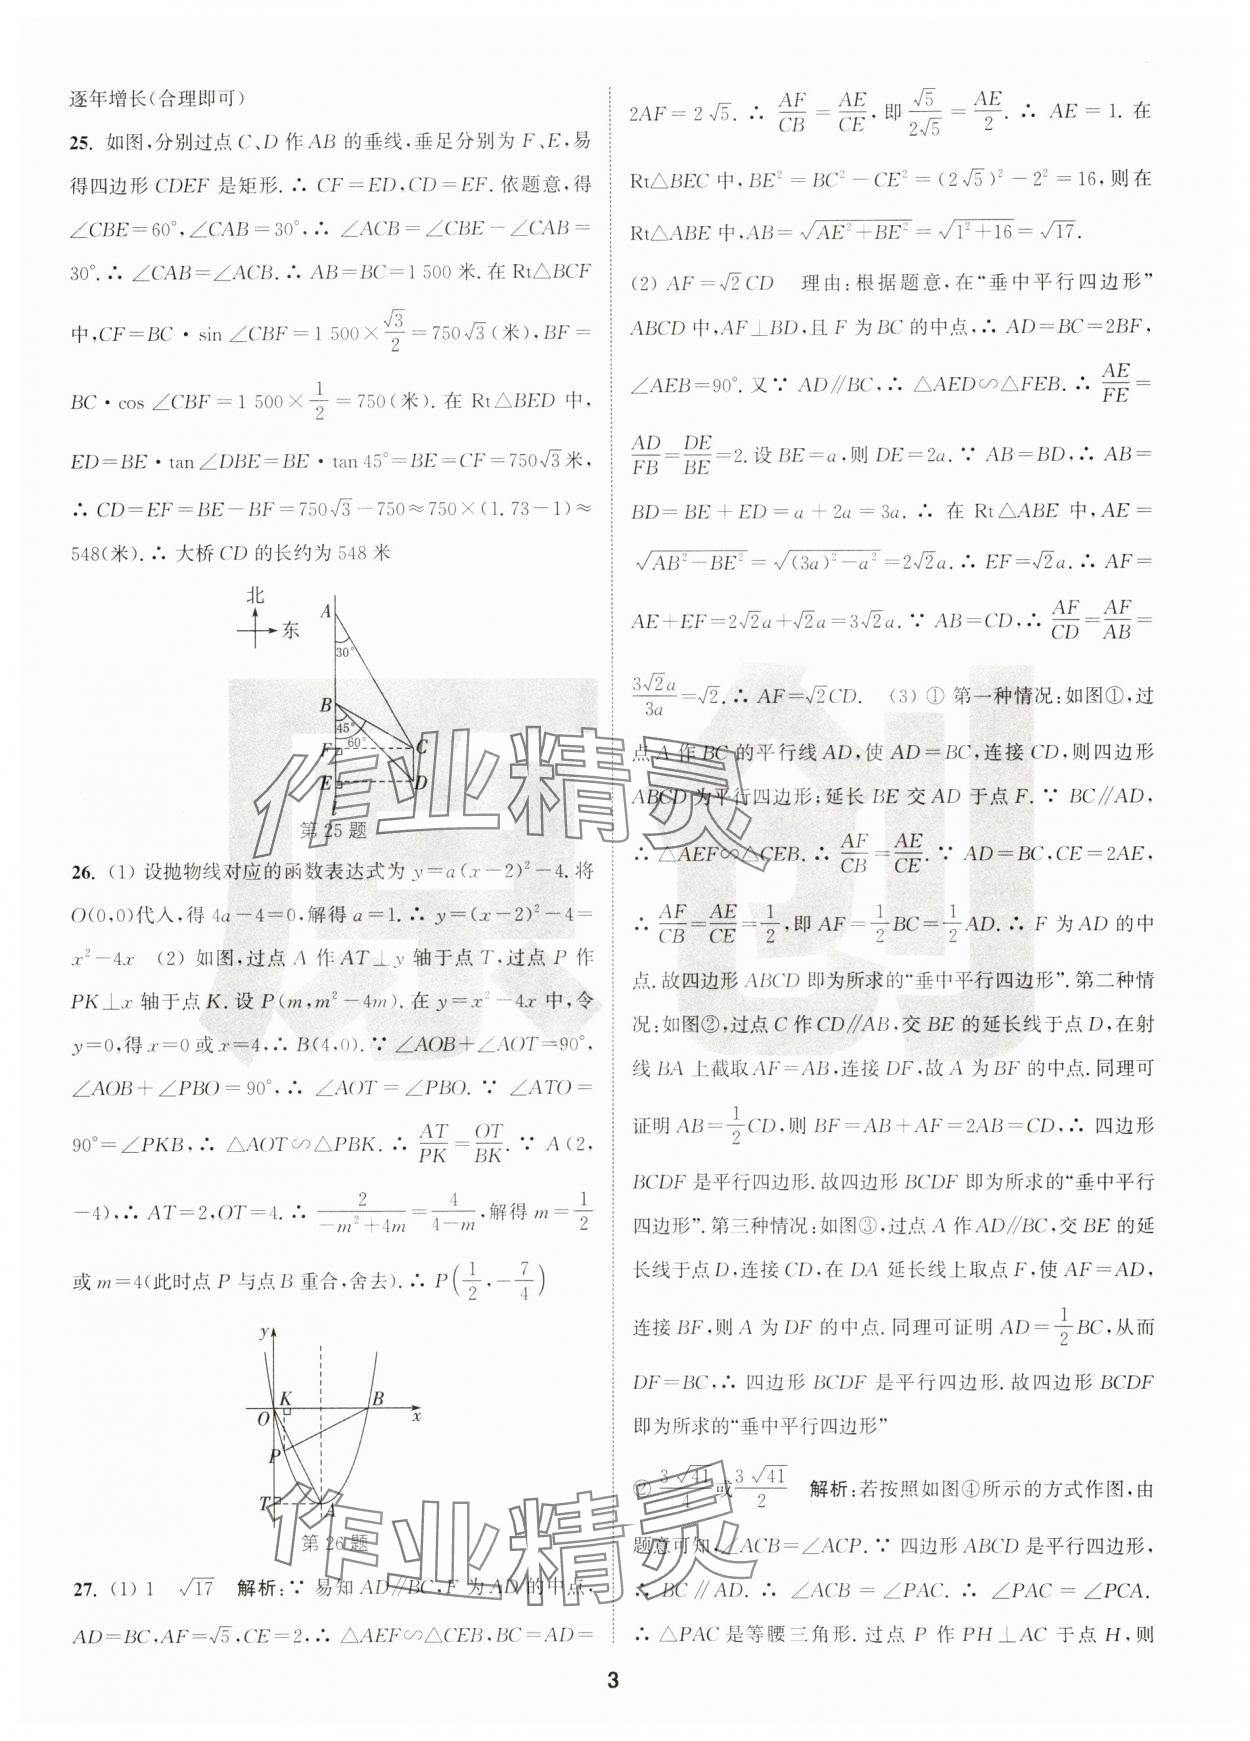 逐年增长(合理即可)
25. 如图,分别过点 C、D 作 AB 的垂线,垂足分别为 F、E,易
得四边形 CDEF 是矩形.∴ CF=ED,CD=EF. 依题意,得
∠CBE=60°,∠CAB=30°,∴ ∠ACB=∠CBE-∠CAB=
30°.∴ ∠CAB=∠ACB.∴ AB=BC=1 500 米.在 Rt△BCF
中,CF=BC·sin ∠CBF=1 500×√3/2=750√3(米),BF=
BC·cos ∠CBF=1 500×1/2=750(米).在 Rt△BED 中,
ED=BE·tan ∠DBE=BE·tan 45°=BE=CF=750√3米,
∴ CD=EF=BE-BF=750√3-750≈750×(1.73-1)≈
548(米).∴ 大桥 CD 的长约为 548 米
北
东
A
30°
B
45°
60°
F
C
E
D
l
第 25 题
26. (1) 设抛物线对应的函数表达式为 y=a(x-2)²-4. 将
O(0,0)代入,得 4a-4=0,解得 a=1.∴ y=(x-2)²-4=
x²-4x (2) 如图,过点 A 作 AT⊥y 轴于点 T,过点 P 作
PK⊥x 轴于点 K. 设 P(m,m²-4m). 在 y=x²-4x 中,令
y=0,得 x=0 或 x=4,∴ B(4,0).∵ ∠AOB+∠AOT=90°,
∠AOB+∠PBO=90°,∴ ∠AOT=∠PBO.∵ ∠ATO=
90°=∠PKB,∴ △AOT∽△PBK.∴ AT/PK=OT/BK.∵ A(2,
-4),∴ AT=2,OT=4.∴ 2/(-m²+4m)=4/(4-m),解得 m=1/2
或 m=4(此时点 P 与点 B 重合,舍去).∴ P(1/2,-7/4)
y
K
B
O
x
P
T
A
第 26 题
27. (1) 1 √17 解析:∵ 易知 AD∥BC,F 为 AD 的中点,
AD=BC,AF=√5,CE=2,∴ △AEF∽△CEB,BC=AD=
2AF=2√5.∴ AF/CB=AE/CE,即√5/2√5=AE/2.∴ AE=1. 在
Rt△BEC 中,BE²=BC²-CE²=(2√5)²-2²=16,则在
Rt△ABE 中,AB=√(AE²+BE²)=√(1²+16)=√17.
(2) AF=√2CD 理由:根据题意,在“垂中平行四边形”
ABCD 中,AF⊥BD,且 F 为 BC 的中点,∴ AD=BC=2BF,
∠AEB=90°. 又∵ AD∥BC,∴ △AED∽△FEB.∴ AE/FE=
AD/FB=DE/BE=2.设 BE=a,则 DE=2a.∵ AB=BD,∴ AB=
BD=BE+ED=a+2a=3a.∴ 在 Rt△ABE 中,AE=
√(AB²-BE²)=√((3a)²-a²)=2√2a.∴ EF=√2a.∴ AF=
AE+EF=2√2a+√2a=3√2a.∵ AB=CD,∴ AF/CD=AF/AB=
3√2a/3a=√2.∴ AF=√2CD. (3) ① 第一种情况:如图①,过
点 A 作 BC 的平行线 AD,使 AD=BC,连接 CD,则四边形
ABCD 为平行四边形;延长 BE 交 AD 于点 F.∵ BC∥AD,
∴ △AEF∽△CEB.∴ AF/CB=AE/CE.∵ AD=BC,CE=2AE,
∴ AF/CB=AE/CE=1/2,即 AF=1/2BC=1/2AD.∴ F 为 AD 的中
点.故四边形 ABCD 即为所求的“垂中平行四边形”.第二种情
况:如图②,过点 C 作 CD∥AB,交 BE 的延长线于点 D,在射
线 BA 上截取 AF=AB,连接 DF,故 A 为 BF 的中点.同理可
证明 AB=1/2CD,则 BF=AB+AF=2AB=CD,∴ 四边形
BCDF 是平行四边形.故四边形 BCDF 即为所求的“垂中平行
四边形”.第三种情况:如图③,过点 A 作 AD∥BC,交 BE 的延
长线于点 D,连接 CD,在 DA 延长线上取点 F,使 AF=AD,
连接 BF,则 A 为 DF 的中点.同理可证明 AD=1/2BC,从而
DF=BC,∴ 四边形 BCDF 是平行四边形.故四边形 BCDF
即为所求的“垂中平行四边形”
② 3√41/4或3√41/2 解析:若按照如图④所示的方式作图,由
题意可知,∠ACB=∠ACP.∵ 四边形 ABCD 是平行四边形,
∴ BC∥AD.∴ ∠ACB=∠PAC.∴ ∠PAC=∠PCA.
∴ △PAC 是等腰三角形.过点 P 作 PH⊥AC 于点 H,则
3
原创
作业精灵
作业精灵